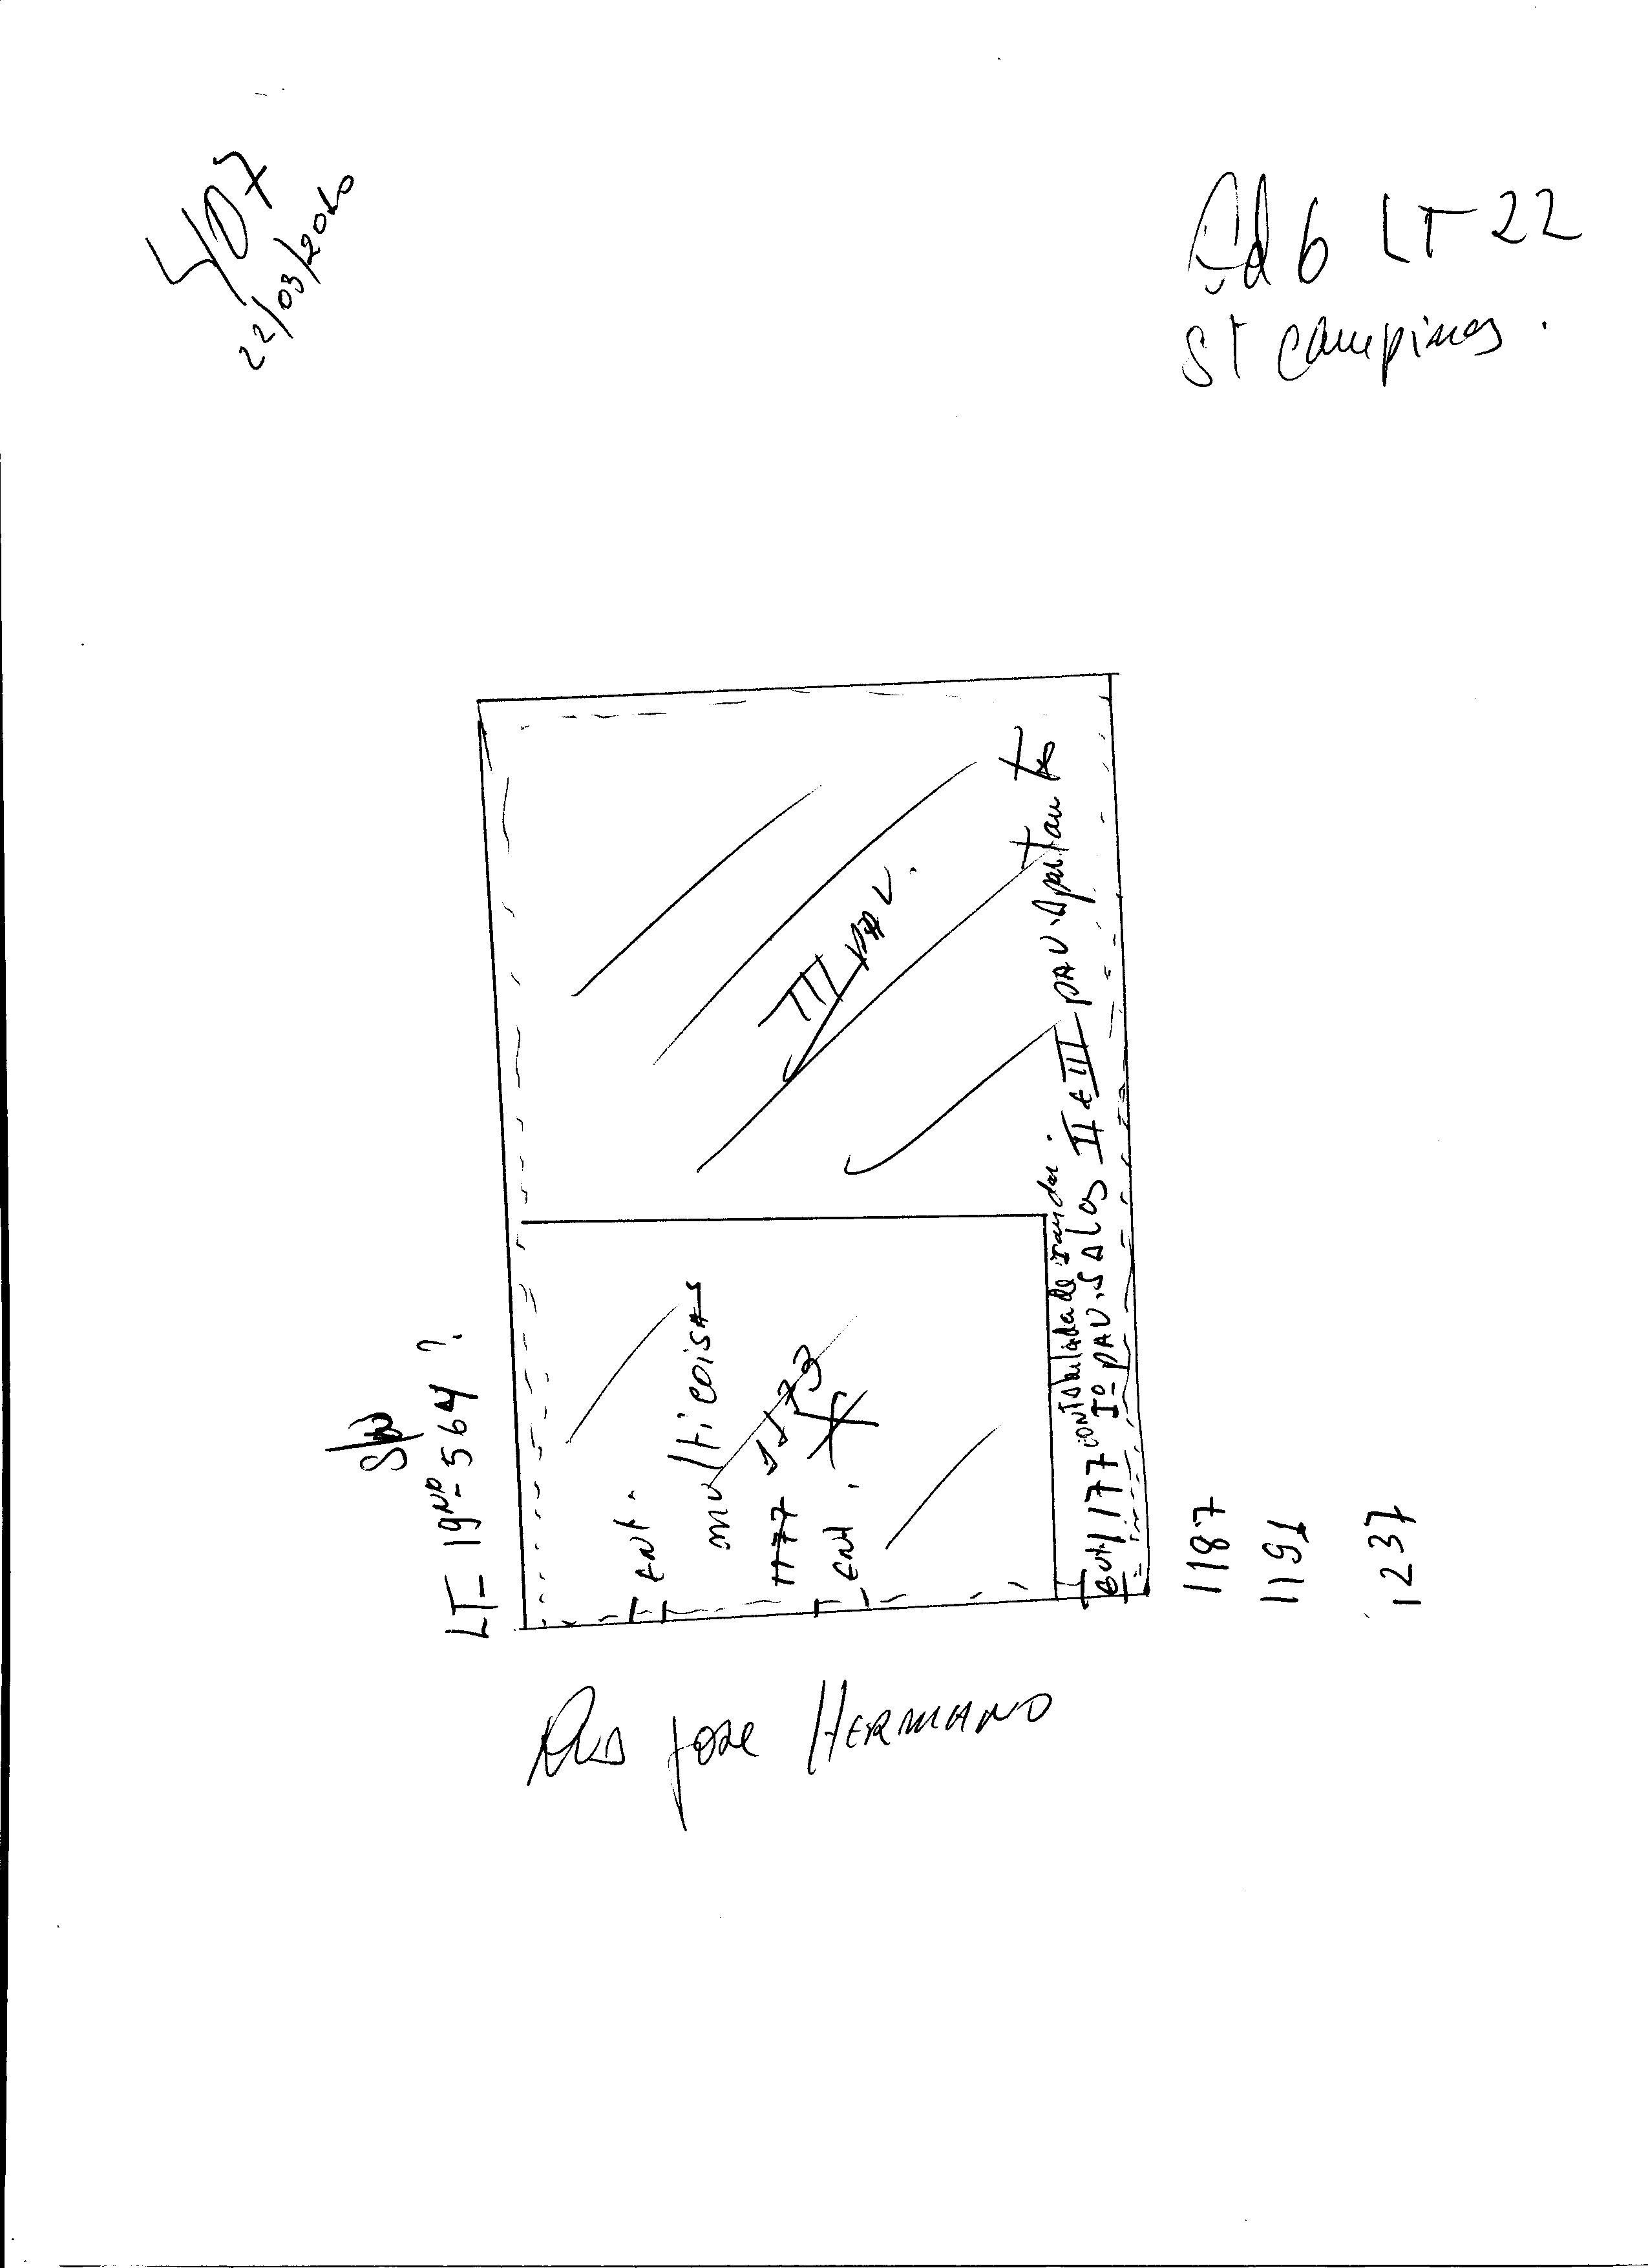 407
22/03/2010
Qd 6 LT 22
St Campinas.
III PAV.
LT- 19 Nº- 564 ?
ENT.
multicoisas
1177 1173
ENT.
1177 contabilidade
Iº PAV. SALAS II e III PAV. Apartam to
1187
1191
1237
Rua Jose HERMANO